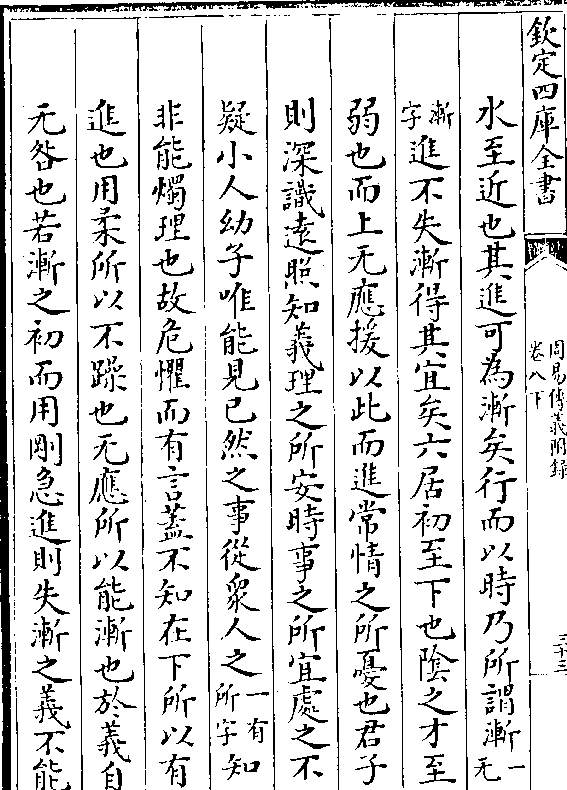 欽定四庫全書
周易傳義附錄
卷八下
三十三
水至近也其進可為漸矣行而以時乃所謂漸一无
漸字進不失漸得其宜矣六居初至下也陰之才至
弱也而上无應援以此而進常情之所憂也君子
則深識遠照知義理之所安時事之所宜處之不
疑小人幼子唯能見已然之事從衆人之一有所字知
非能燭理也故危懼而有言蓋不知在下所以有
進也用柔所以不躁也无應所以能漸也於義自
无咎也若漸之初而用剛急進則失漸之義不能